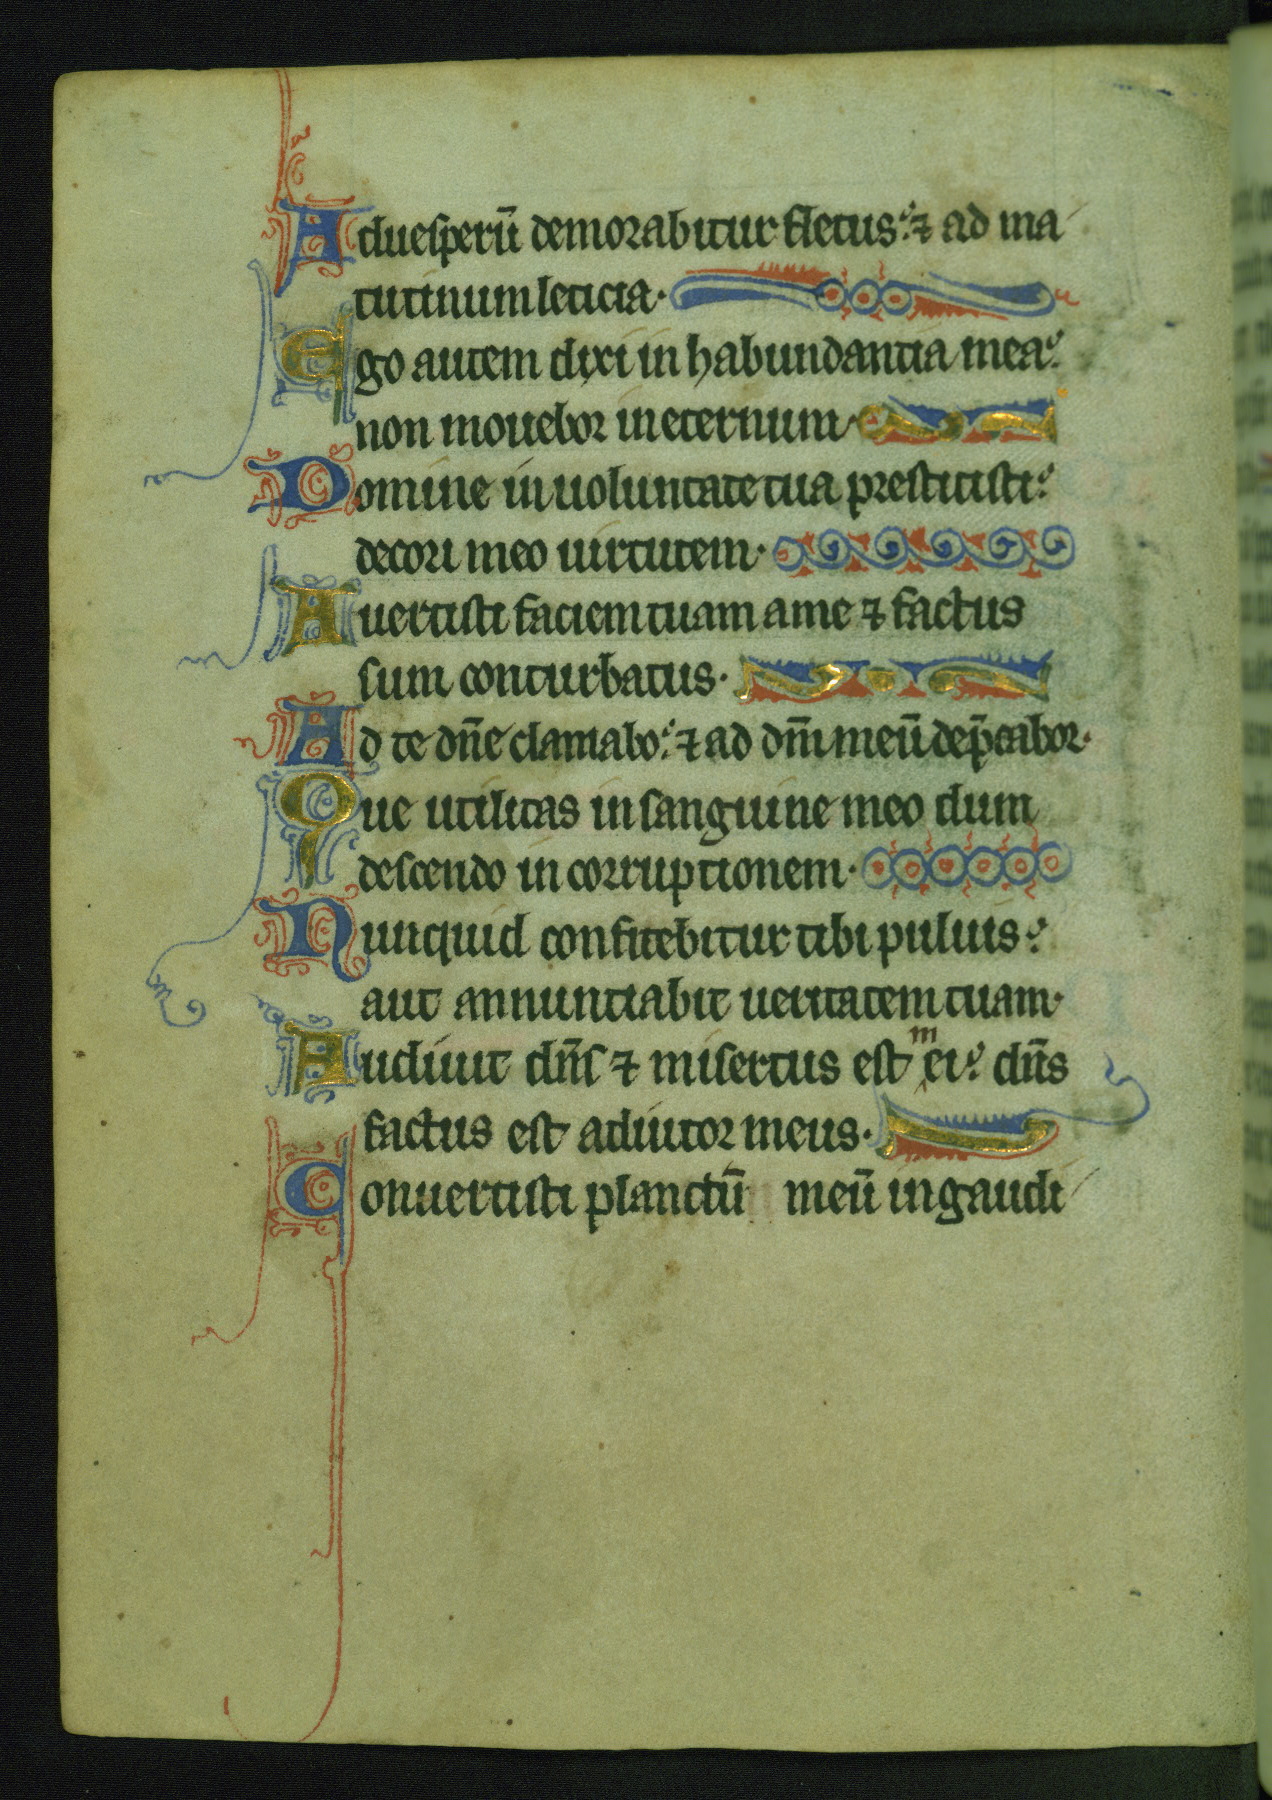 Aduesperū demorabitur fletus: ⁊ ad ma
tutinum leticia.
Ego autem dixi in habundantia mea:
non mouebor in eternum.
Domine in uoluntate tua prestitisti:
decori meo uirtutem.
Auertisti faciem tuam a me ⁊ factus
sum conturbatus.
Ad te dn̄e clamabo: ⁊ ad dm̄ meū dep̄cabor.
Que utilitas in sanguine meo dum
descendo in corruptionem.
Nunquid confitebitur tibi puluis:
aut annuntiabit ueritatem tuam.
Audiuit dn̄s ⁊ misertus est mei: dn̄s
factus est adiutor meus.
Conuertisti planctū meū in gaudi